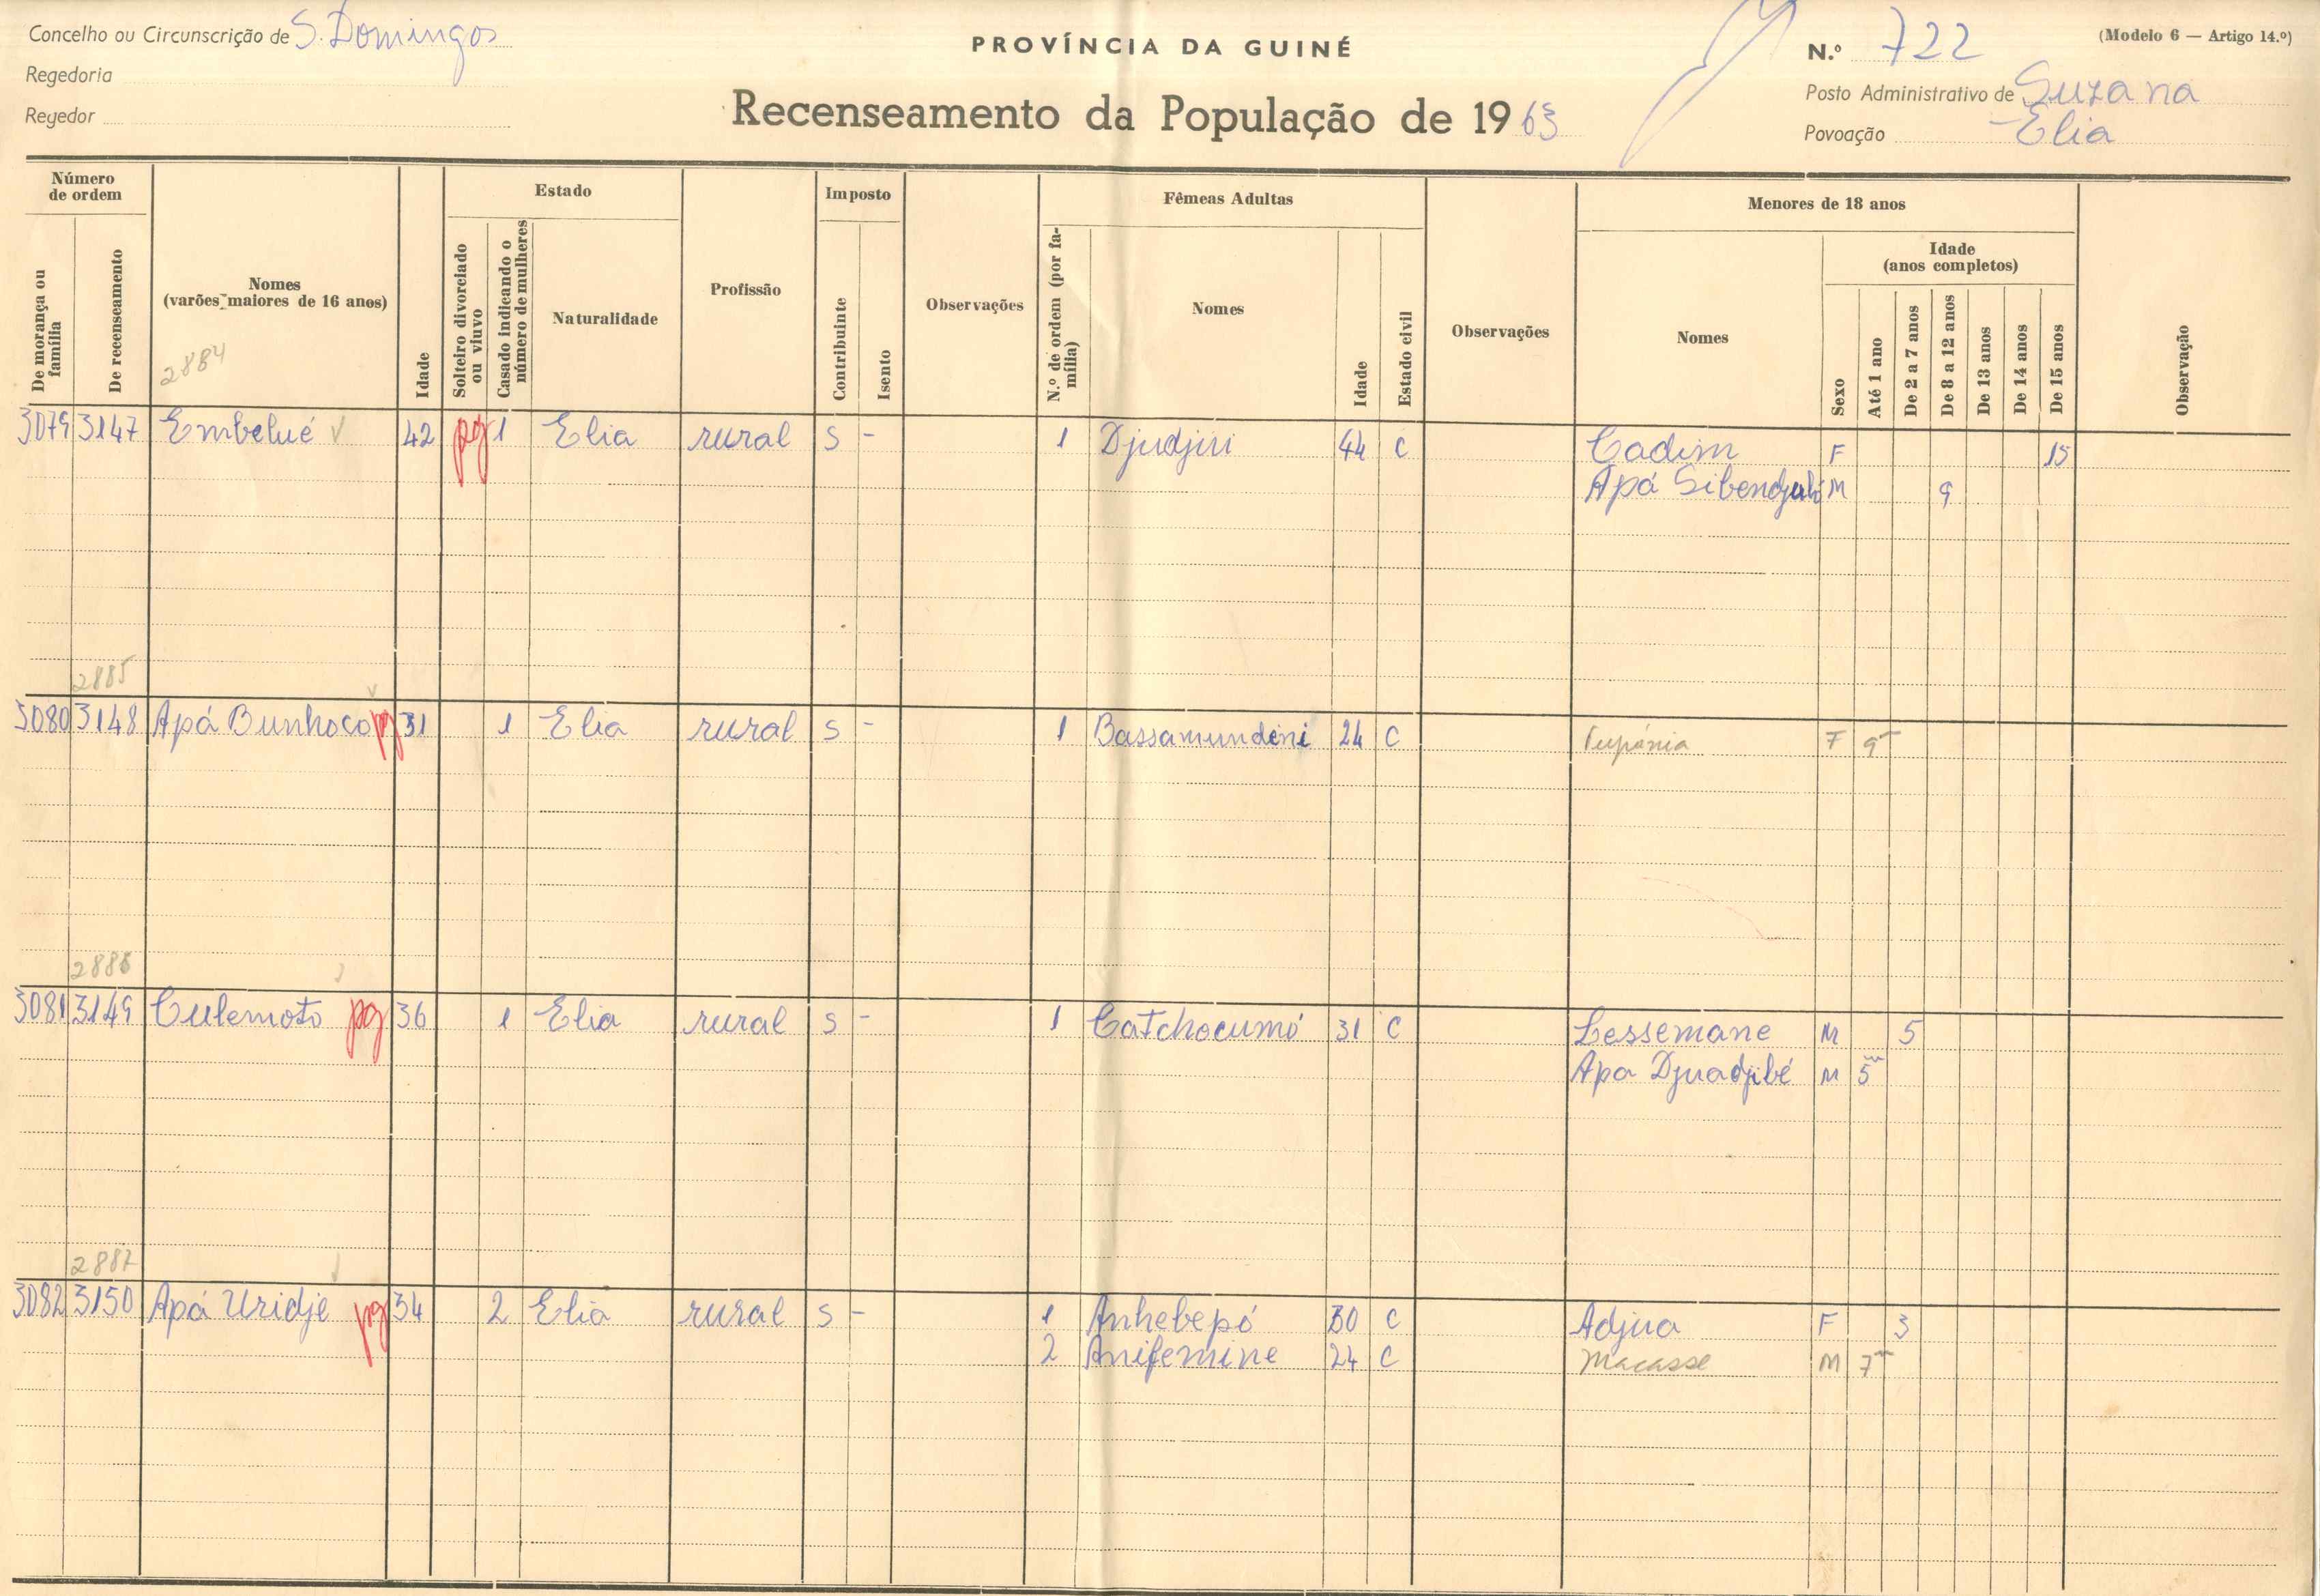 Concelho ou Circunscrição de S. Domingos
Regedoria
Regedor
PROVÍNCIA DA GUINÉ
Recenseamento da População de 1963
N.º 722
(Modelo 6 — Artigo 14.º)
Posto Administrativo de Suzana
Povoação Elia
Número de ordem
De morança ou família
De recenseamento
Nomes
(varões maiores de 16 anos)
2884
Idade
Estado
Solteiro divorciado ou viuvo
Casado indicando o número de mulheres
Naturalidade
Profissão
Imposto
Contribuinte
Isento
Observações
Fêmeas Adultas
N.º de ordem (por família)
Nomes
Idade
Estado civil
Observações
Menores de 18 anos
Nomes
Sexo
Idade
(anos completos)
Até 1 ano
De 2 a 7 anos
De 8 a 12 anos
De 13 anos
De 14 anos
De 15 anos
Observação
3079 3147 Embelué 42 pg 1 Elia rural S - 1 Djudjui 44 C Cadim F 15
Apá Sibendjabó M 9
2885
3080 3148 Apá Bunhoco pg 31 1 Elia rural S - 1 Bassamundeni 24 C F 9
2886
3081 3149 Culemoto pg 36 1 Elia rural S - 1 Catchocumó 31 C Lessemane M 5
Apa Djuadjibé M 5m
2887
3082 3150 Apá Uridje pg 34 2 Elia rural S - 1 Anhebepó 30 C Adjua F 3
2 Anifemine 24 C Macasse M 7m